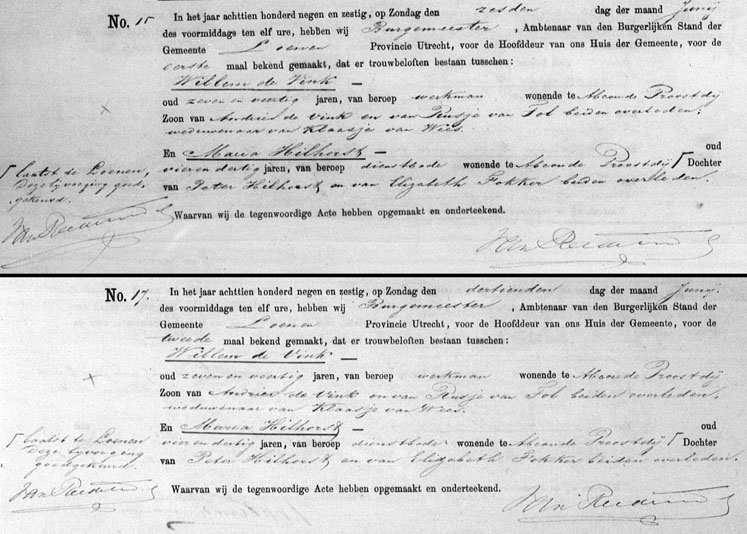 No. 15 In het jaar achttien honderd negen en zestig, op Zondag den zesden dag der maand Junij
des voormiddags ten elf ure, hebben wij Burgemeester , Ambtenaar van den Burgerlijken Stand der
Gemeente Loenen Provincie Utrecht, voor de Hoofddeur van ons Huis der Gemeente, voor de
eerste maal bekend gemaakt, dat er trouwbeloften bestaan tusschen:
Willem de Vink —
oud zeven en veertig jaren, van beroep werkman wonende te Abcoude Proostdij
Zoon van Andries de Vink en van Pusje van Tol beiden overleden,
weduwenaar van Klaasje van Wees.
En Maria Hilhorst — oud
vier en dertig jaren, van beroep dienstbode wonende te Abcoude Proostdij Dochter
van Peter Hilhorst en van Elizabeth Fokker beiden overleden.
laatst te Loenen,
Deze bijvoeging goed-
gekeurd.
Waarvan wij de tegenwoordige Acte hebben opgemaakt en onderteekend.
No. 17. In het jaar achttien honderd negen en zestig, op Zondag den dertienden dag der maand Junij.
des voormiddags ten elf ure, hebben wij Burgemeester , Ambtenaar van den Burgerlijken Stand der
Gemeente Loenen Provincie Utrecht, voor de Hoofddeur van ons Huis der Gemeente, voor de
tweede maal bekend gemaakt, dat er trouwbeloften bestaan tusschen:
Willem de Vink —
oud zeven en veertig jaren, van beroep werkman wonende te Abcoude Proostdij
Zoon van Andries de Vink en van Pusje van Tol beiden overleden,
weduwenaar van Klaasje van Wees.
En Maria Hilhorst — oud
vier en dertig jaren, van beroep dienstbode wonende te Abcoude Proostdij Dochter
van Peter Hilhorst en van Elizabeth Fokker beiden overleden.
laatst te Loenen
Deze bijvoeging
goedgekeurd.
Waarvan wij de tegenwoordige Acte hebben opgemaakt en onderteekend.